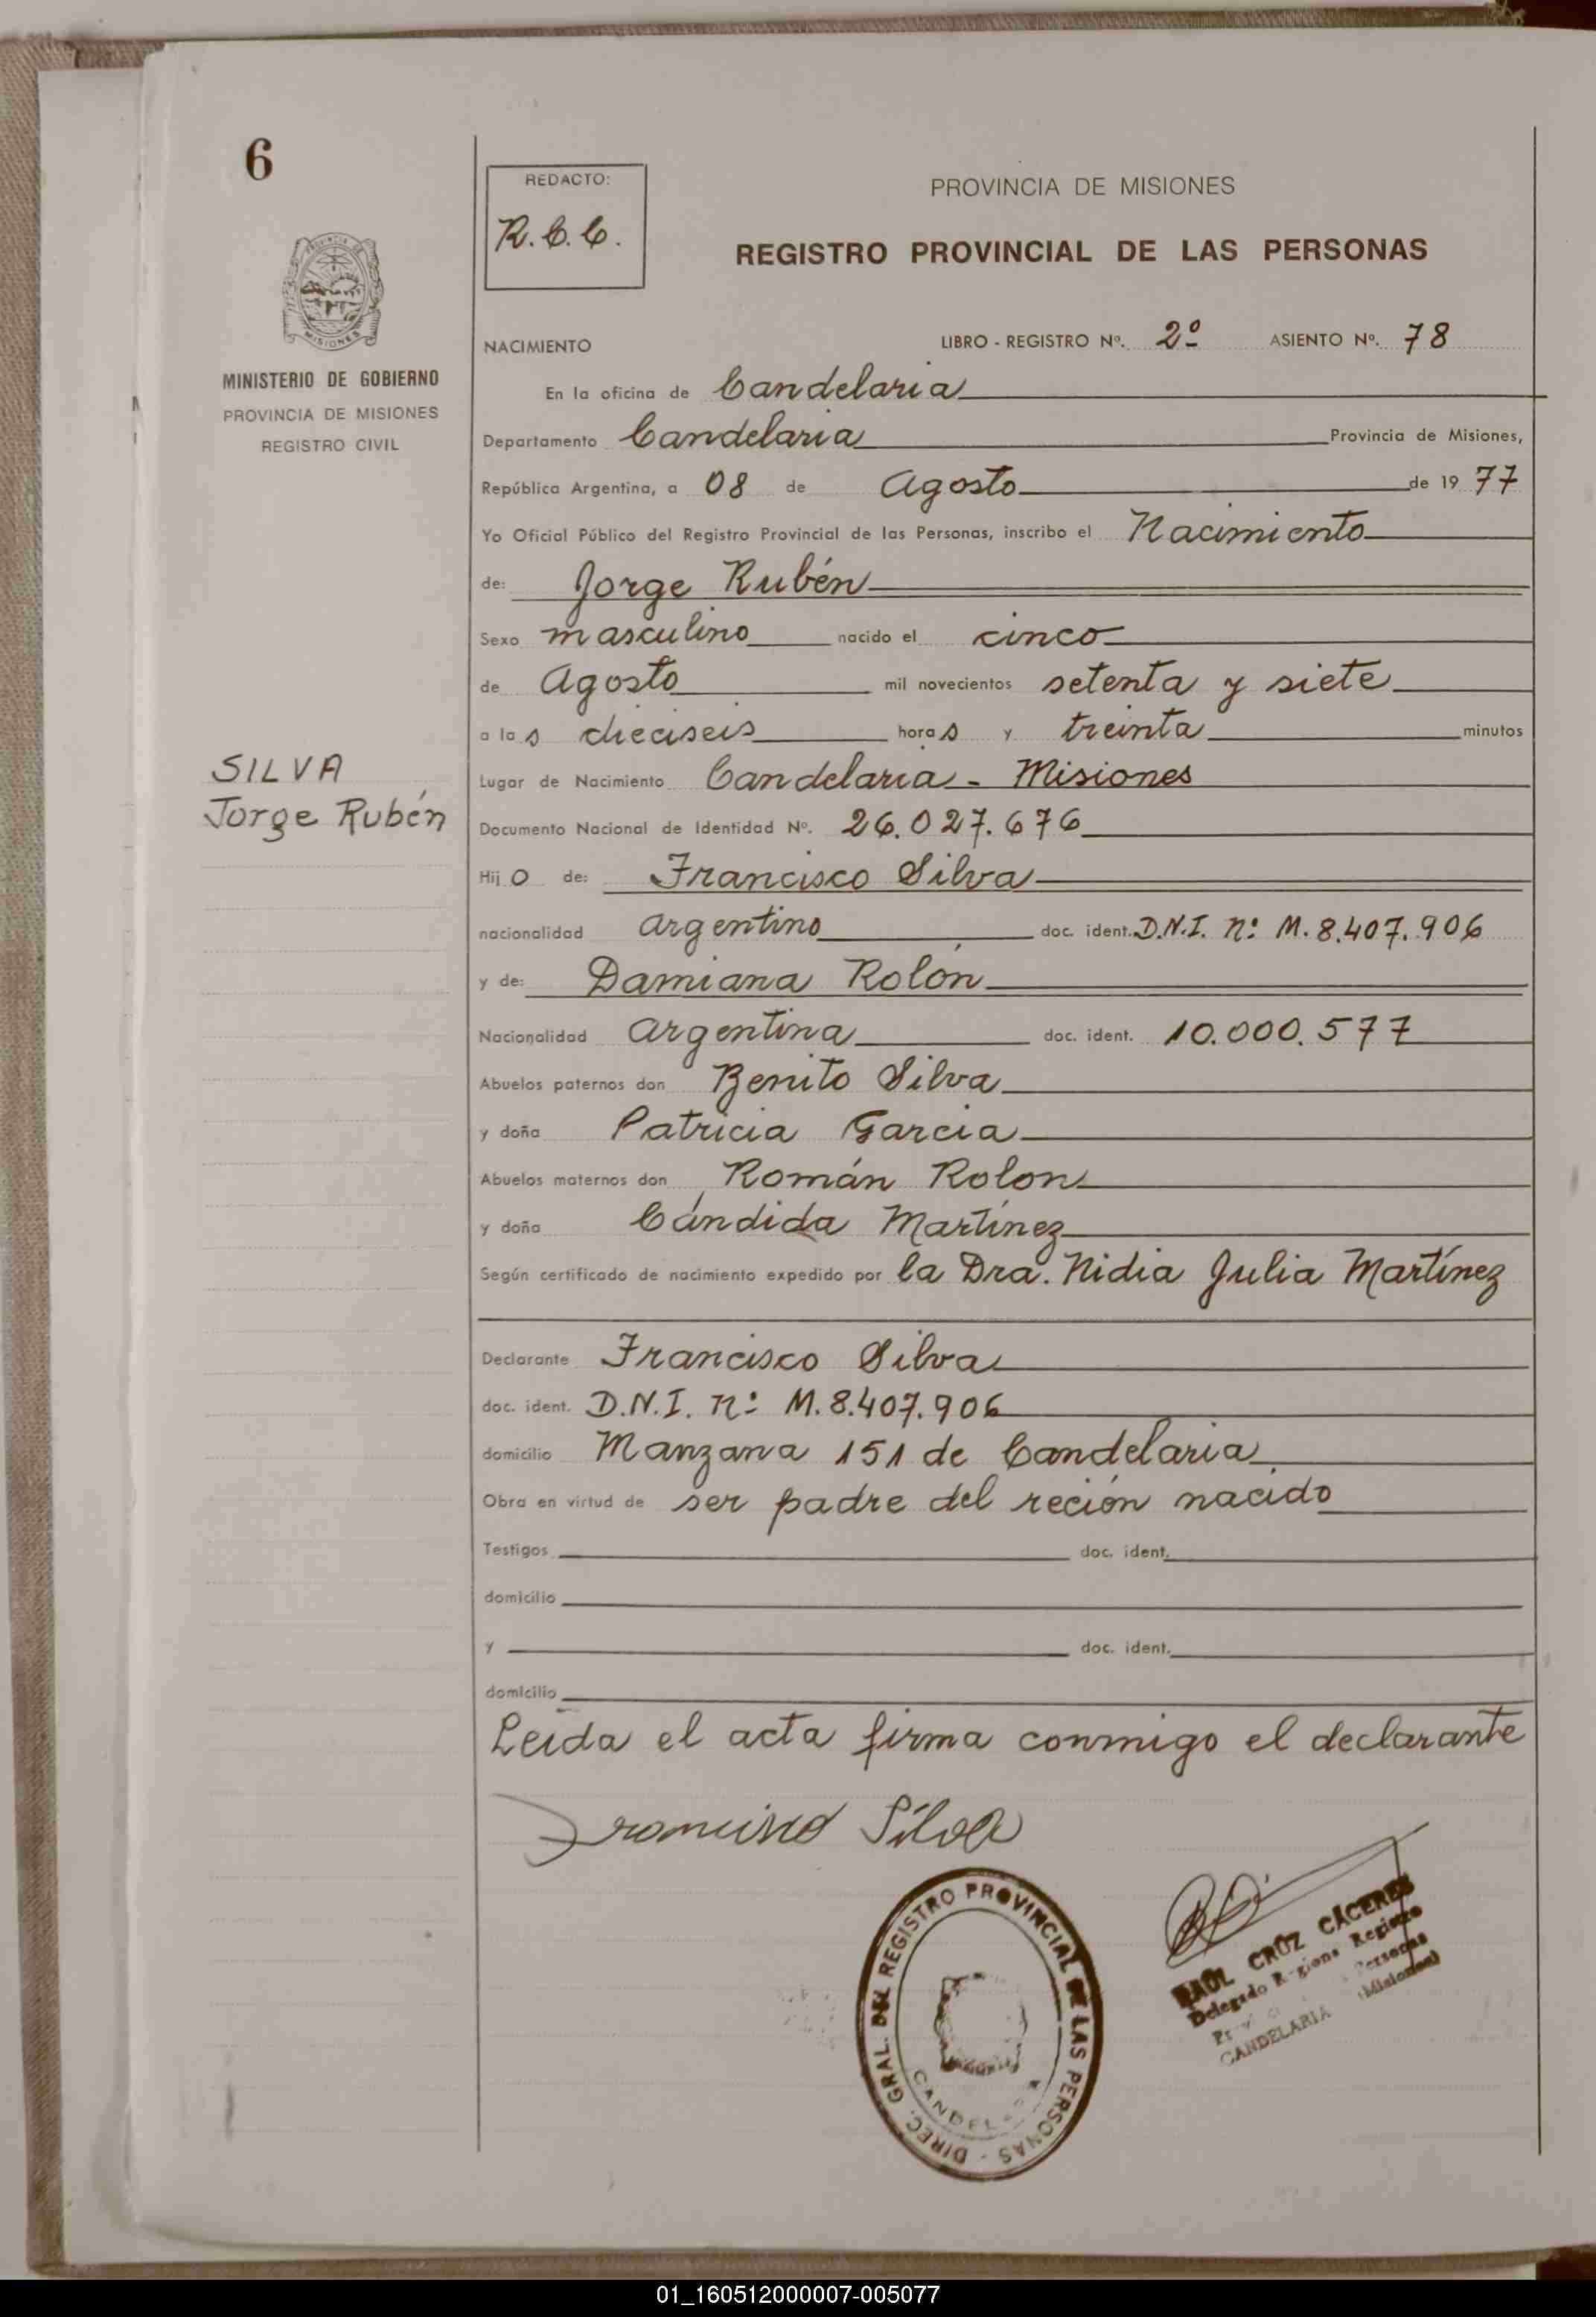 6
REDACTO:
R.C.C.
PROVINCIA DE MISIONES
REGISTRO PROVINCIAL DE LAS PERSONAS
PROVINCIA DE
MISIONES
MINISTERIO DE GOBIERNO
PROVINCIA DE MISIONES
REGISTRO CIVIL
NACIMIENTO LIBRO - REGISTRO Nº. 2º ASIENTO Nº. 78
En la oficina de Candelaria
Departamento Candelaria Provincia de Misiones,
República Argentina, a 08 de Agosto de 1977
Yo Oficial Público del Registro Provincial de las Personas, inscribo el Nacimiento
de: Jorge Rubén
Sexo masculino nacido el cinco
de Agosto mil novecientos setenta y siete
a las dieciseis horas y treinta minutos
SILVA
Jorge Rubén
Lugar de Nacimiento Candelaria - Misiones
Documento Nacional de Identidad Nº. 26.027.676
Hijo de: Francisco Silva
nacionalidad Argentino doc. ident. D.N.I. nº: M. 8.407.906
y de: Damiana Rolón
Nacionalidad Argentina doc. ident. 10.000.577
Abuelos paternos don Benito Silva
y doña Patricia Garcia
Abuelos maternos don Román Rolon
y doña Cándida Martínez
Según certificado de nacimiento expedido por la Dra. Nidia Julia Martínez
Declarante Francisco Silva
doc. ident. D.N.I. nº: M. 8.407.906
domicilio Manzana 151 de Candelaria
Obra en virtud de ser padre del reción nacido
Testigos doc. ident.
domicilio
y doc. ident.
domicilio
Leída el acta firma conmigo el declarante
Francisco Silva
DIREC. GRAL. DEL REGISTRO PROVINCIAL DE LAS PERSONAS -
RAÚL CRUZ CÁCERES
Delegado Registro
Personas
CANDELARIA (Misiones)
01_160512000007-005077